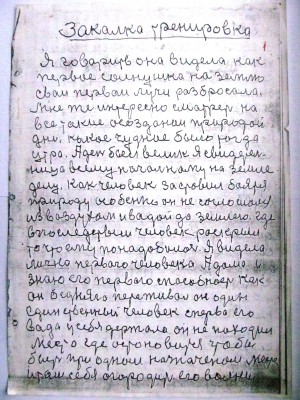 Закалка тренировка
Я говорить она видела как
первое солнушка на землю
свои первои лучи разбросала.
Мне же интересно смотреть на
все такие созданои природой
дни, какое чудное было тогда
утра. А день был велик Я свидетель-
ница всему началнаму на земле
делу. Как человек застовил бояря
природу особенно он не соглошался
из воздухам и вадой до землею. где
впоследствии человек расскрыли
то что ему понадобился Я видела
лично первого человека Адама и
знаю его первого способност как
он бедняга переживал он один
единственный человек сперва его
вада у себя держала он не находил
место где остоновится чтобы
быть при одном назначеном месте